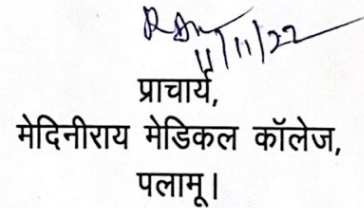 11/11/22
प्राचार्य,
मेदिनीराय मेडिकल कॉलेज,
पलामू।